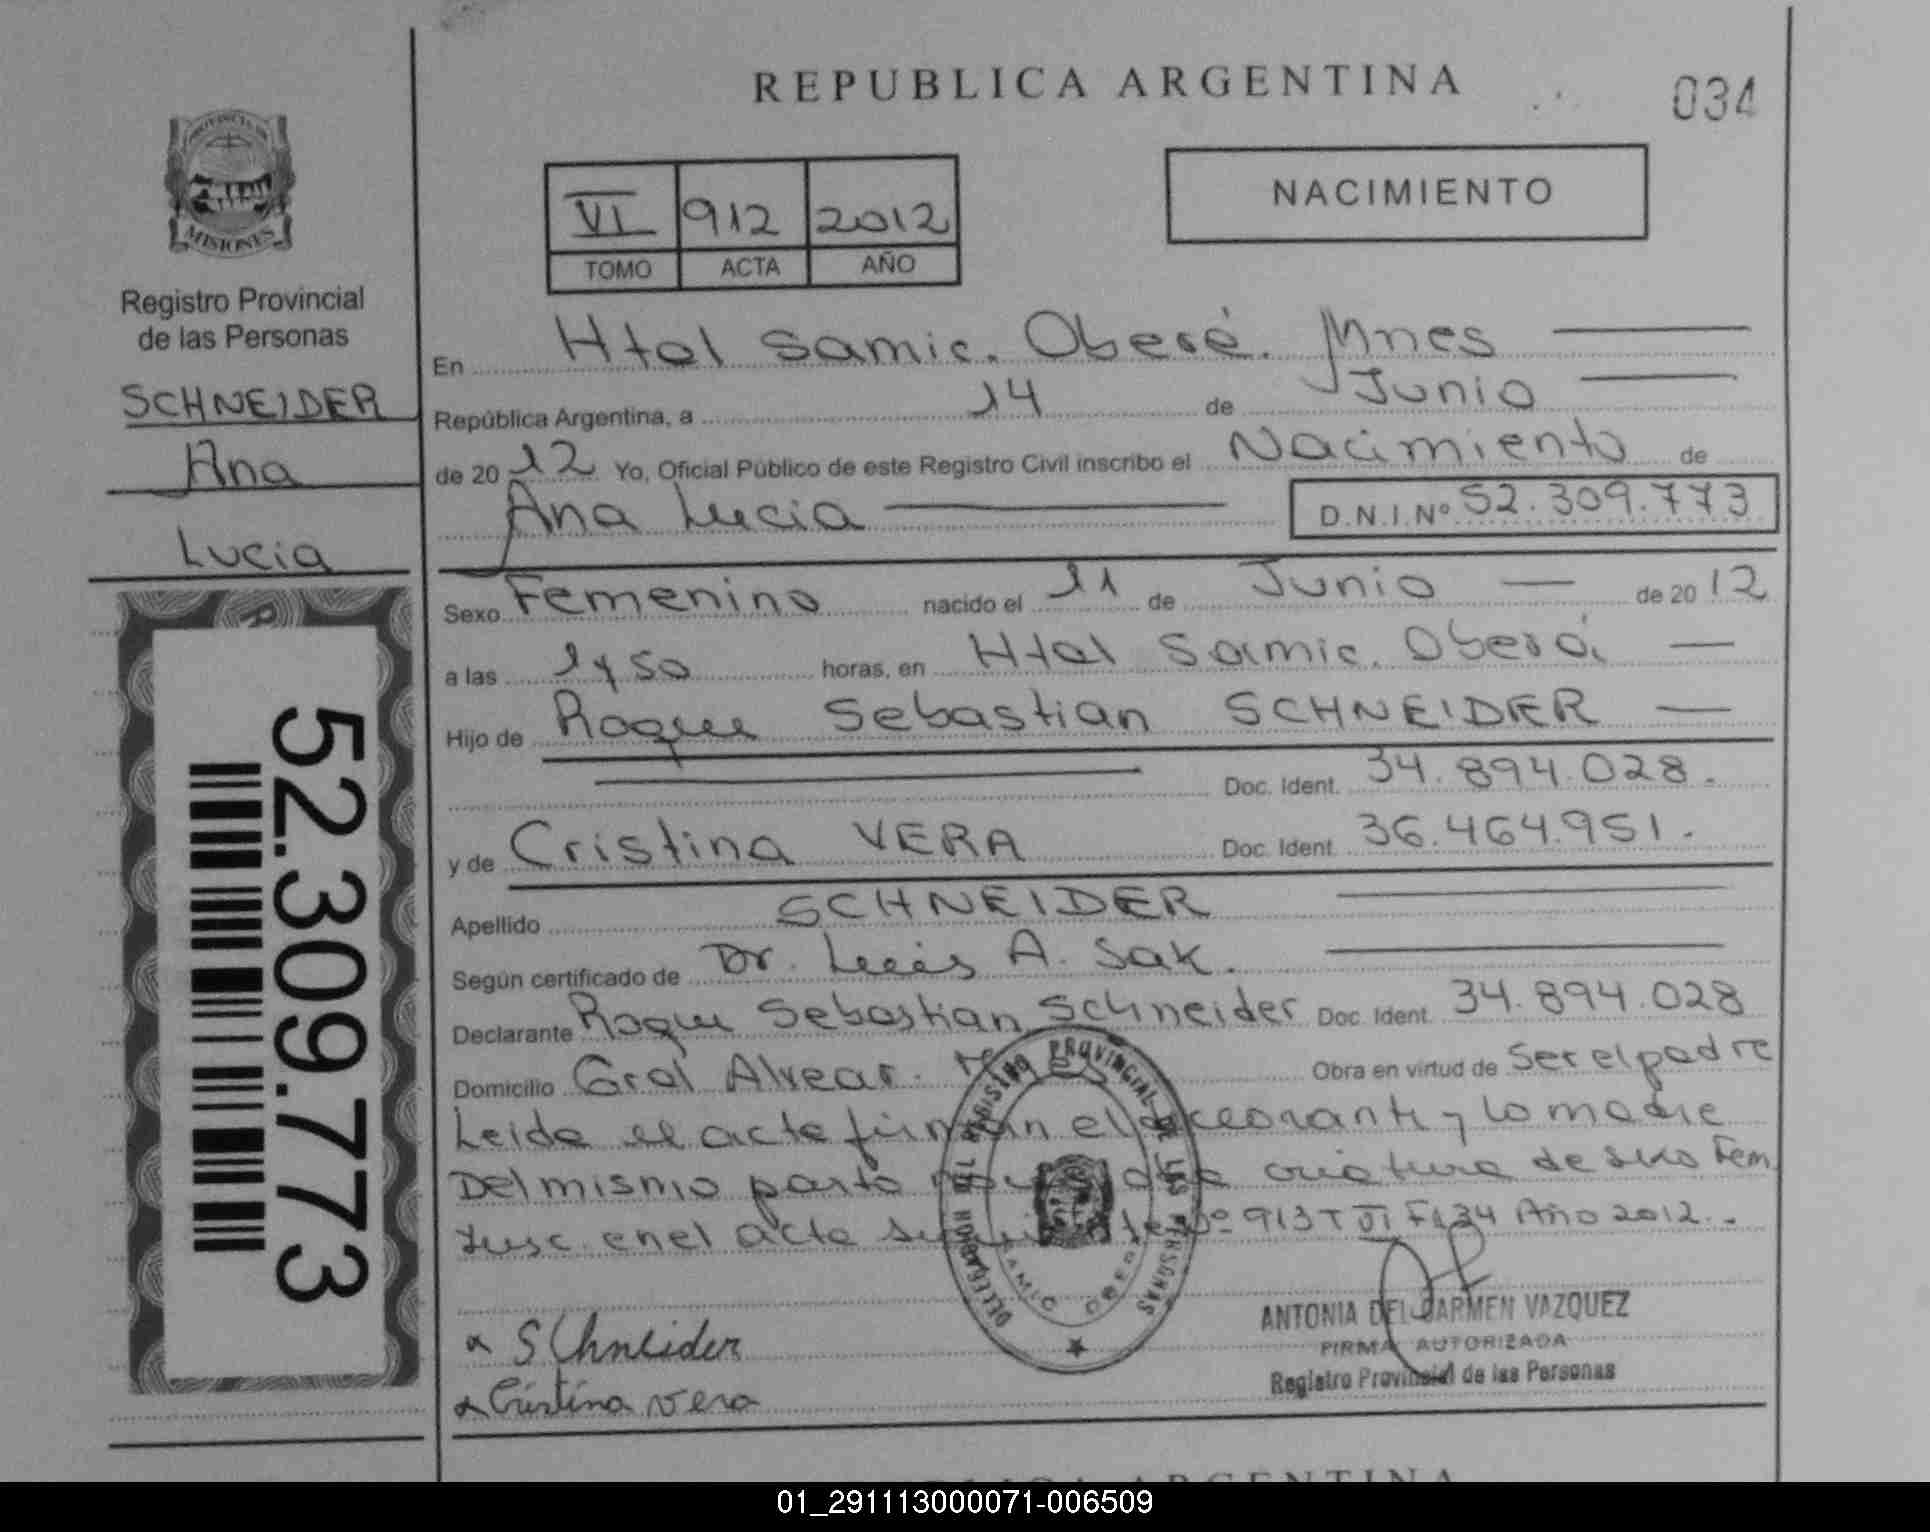 REPUBLICA ARGENTINA
034
PROVINCIA DE
MISIONES
Registro Provincial
de las Personas
SCHNEIDER
Ana
Lucia
52.309.773
VI 912 2012
TOMO ACTA AÑO
NACIMIENTO
En Htal Samic. Oberá. Mnes
República Argentina, a 14 de Junio
de 2012 Yo, Oficial Público de este Registro Civil inscribo el Nacimiento de
Ana Lucia D.N.I.Nº 52.309.773
Sexo Femenino nacido el 11 de Junio de 2012
a las horas, en Htal Samic. Oberá
Hijo de Roque Sebastian SCHNEIDER
Doc. Ident. 34.894.028.
y de Cristina VERA Doc. Ident. 36.464.951.
Apellido SCHNEIDER
Según certificado de Dr. Luis A. Sak.
Declarante Roque Sebastian Schneider Doc. Ident. 34.894.028
Domicilio Gral Alvear. Obra en virtud de Ser el padre
Leida el acta firman el y la madre
Del mismo parto criatura de sexo Fem.
en el acta Nº 913 T VI F 134 Año 2012.
DELEGACION DEL REGISTRO PROVINCIAL DE LAS PERSONAS
SAMIC OBERA
Schneider
Cristina Vera
ANTONIA DEL CARMEN VAZQUEZ
FIRMA AUTORIZADA
Registro Provincial de las Personas
REPUBLICA ARGENTINA
01_291113000071-006509